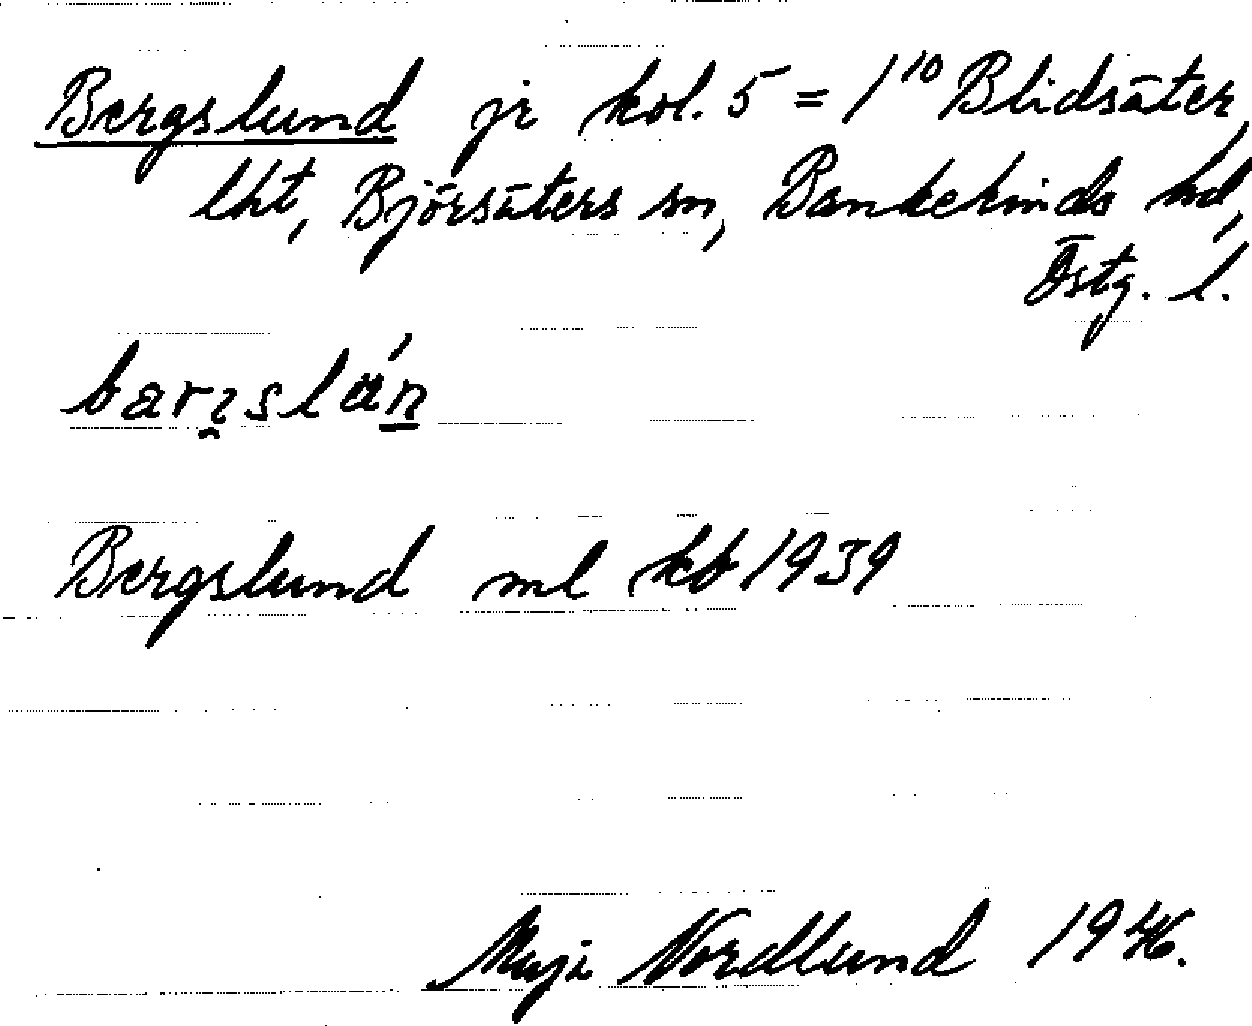 Bergslund jr kol. 5 = 1¹⁰ Blidsäter,
lht, Björsäters sn, Bankekinds hd,
Östg. l.
Bergslund ml kb 1939
Maji Nordlund 1946.